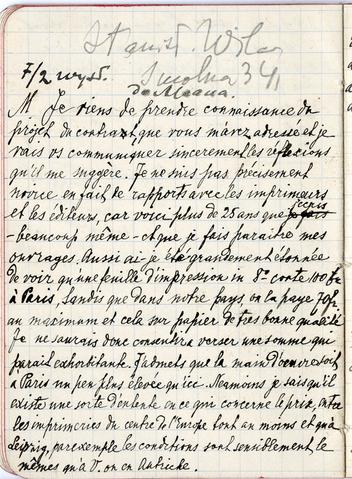 Stanisł. W
Smolna 34
7/2 wysł.
do Meana.
M Je viens de prendre connaissance du
projet du contrat, que vous m'avez adressé et je
vais vs communiquer sincerement les réflexions
qu'il me suggère. Je ne suis pas précisement
novice en fait de rapports avec les imprimeurs
et les éditeurs, car voici plus de 25 ans que j'écris
- beaucoup même - et que je fais paraitre mes
ouvrages. Aussi ai-je été grandement étonnée
de voir qu'une feuille d'impression in 8° coute 100 fr
à Paris, tandis que dans notre pays, on la paye 70 fr
au maximum et cela sur papier de très bonne qualité
Je ne saurais donc consentir a verser une somme qui
parait exhorbitante. J'admets que la main d'oeuvre soit
à Paris un peu plus élevée qu'ici. Neamoins je sais qu'il
existe une sorte d'entente en ce qui concerne le prix, entre
les imprimeries du centre de l'Europe tout au moins et qu'à
Leipzig, par exemple les conditions sont sensiblement les
mêmes qu'à V. ou en Autriche.